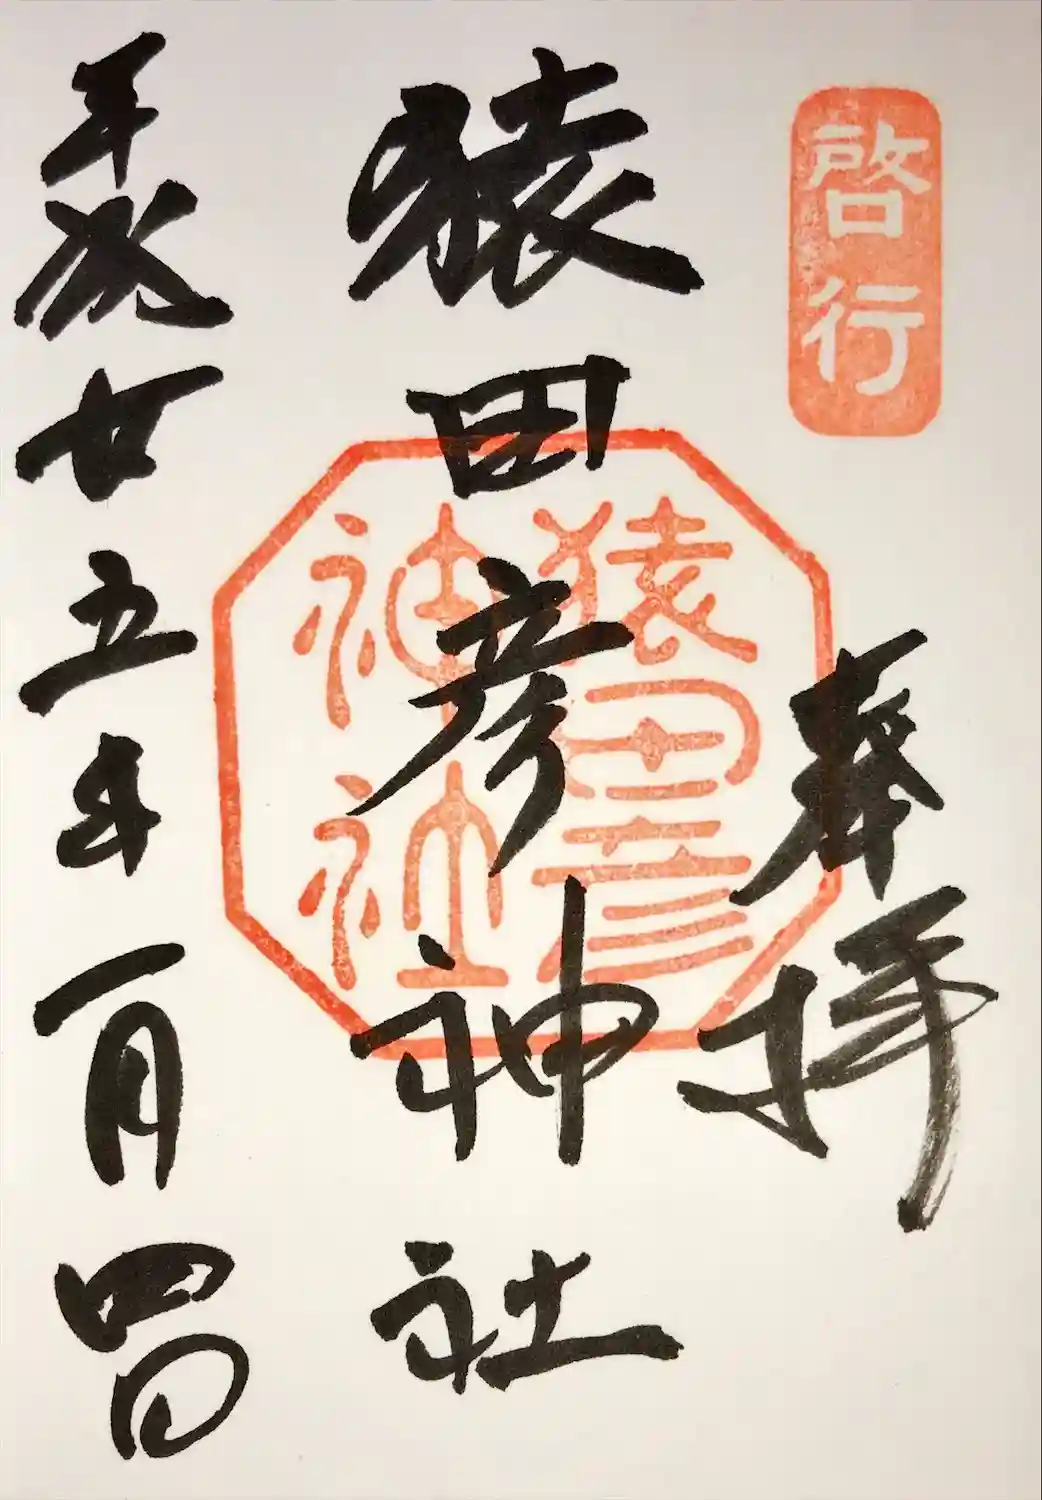 啓行
奉拝
猿田彦神社
猿田彦
神社
平成廿五年一月四日